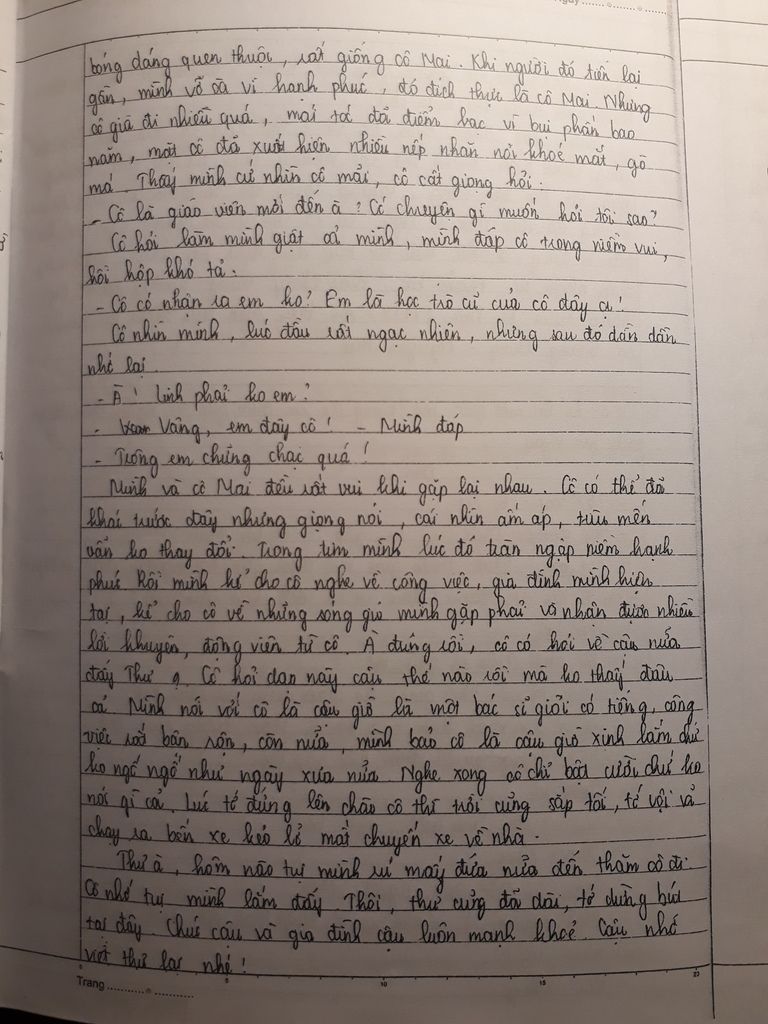 Ngày ............
bóng dáng quen thuộc, rất giống cô Mai. Khi người đó tiến lại
gần, mình vỡ oà vì hạnh phúc, đó đích thực là cô Mai. Nhưng
cô già đi nhiều quá, mái tóc đã điểm bạc vì bụi phấn bao
năm, mặt cô đã xuất hiện nhiều nếp nhăn nơi khoé mắt, gò
má. Thấy mình cứ nhìn cô mãi, cô cất giọng hỏi:
- Cô là giáo viên mới đến à? Có chuyện gì muốn hỏi tôi sao?
Cô hỏi làm mình giật cả mình, mình đáp cô trong niềm vui,
hồi hộp khó tả.
- Cô có nhận ra em ko? Em là học trò cũ của cô đây ạ!
Cô nhìn mình, lúc đầu rất ngạc nhiên, nhưng sau đó dần dần
nhớ lại.
- À! Linh phải ko em?
- Vâng, em đây cô! - Mình đáp
- Trông em chững chạc quá!
Mình và cô Mai đều rất vui khi gặp lại nhau. Cô có thể đã
khác trước đây nhưng giọng nói, cái nhìn ấm áp, trìu mến
vẫn ko thay đổi. Trong tim mình lúc đó tràn ngập niềm hạnh
phúc. Rồi mình kể cho cô nghe về công việc, gia đình mình hiện
tại, kể cho cô về những sóng gió mình gặp phải và nhận được nhiều
lời khuyên, động viên từ cô. À đúng rồi, cô có hỏi về cậu nữa
đấy Thư ạ. Cô hỏi dạo này cậu thế nào rồi mà ko thấy đâu
cả. Mình nói với cô là cậu giờ là một bác sĩ giỏi có tiếng, công
việc rất bận rộn, còn nữa, mình bảo cô là cậu giờ xinh lắm chứ
ko ngố ngố như ngày xưa nữa. Nghe xong cô chỉ bật cười chứ ko
nói gì cả. Lúc tớ đứng lên chào cô thì trời cũng sắp tối, tớ vội vã
chạy ra bến xe kẻo lỡ mất chuyến xe về nhà.
Thư à, hôm nào tụi mình rủ mấy đứa nữa đến thăm cô đi.
Cô nhớ tụi mình lắm đấy. Thôi, thư cũng đã dài, tớ dừng bút
tại đây. Chúc cậu và gia đình cậu luôn mạnh khoẻ. Cậu nhớ
viết thư lại nhé!
Trang ............
5 10 15 20